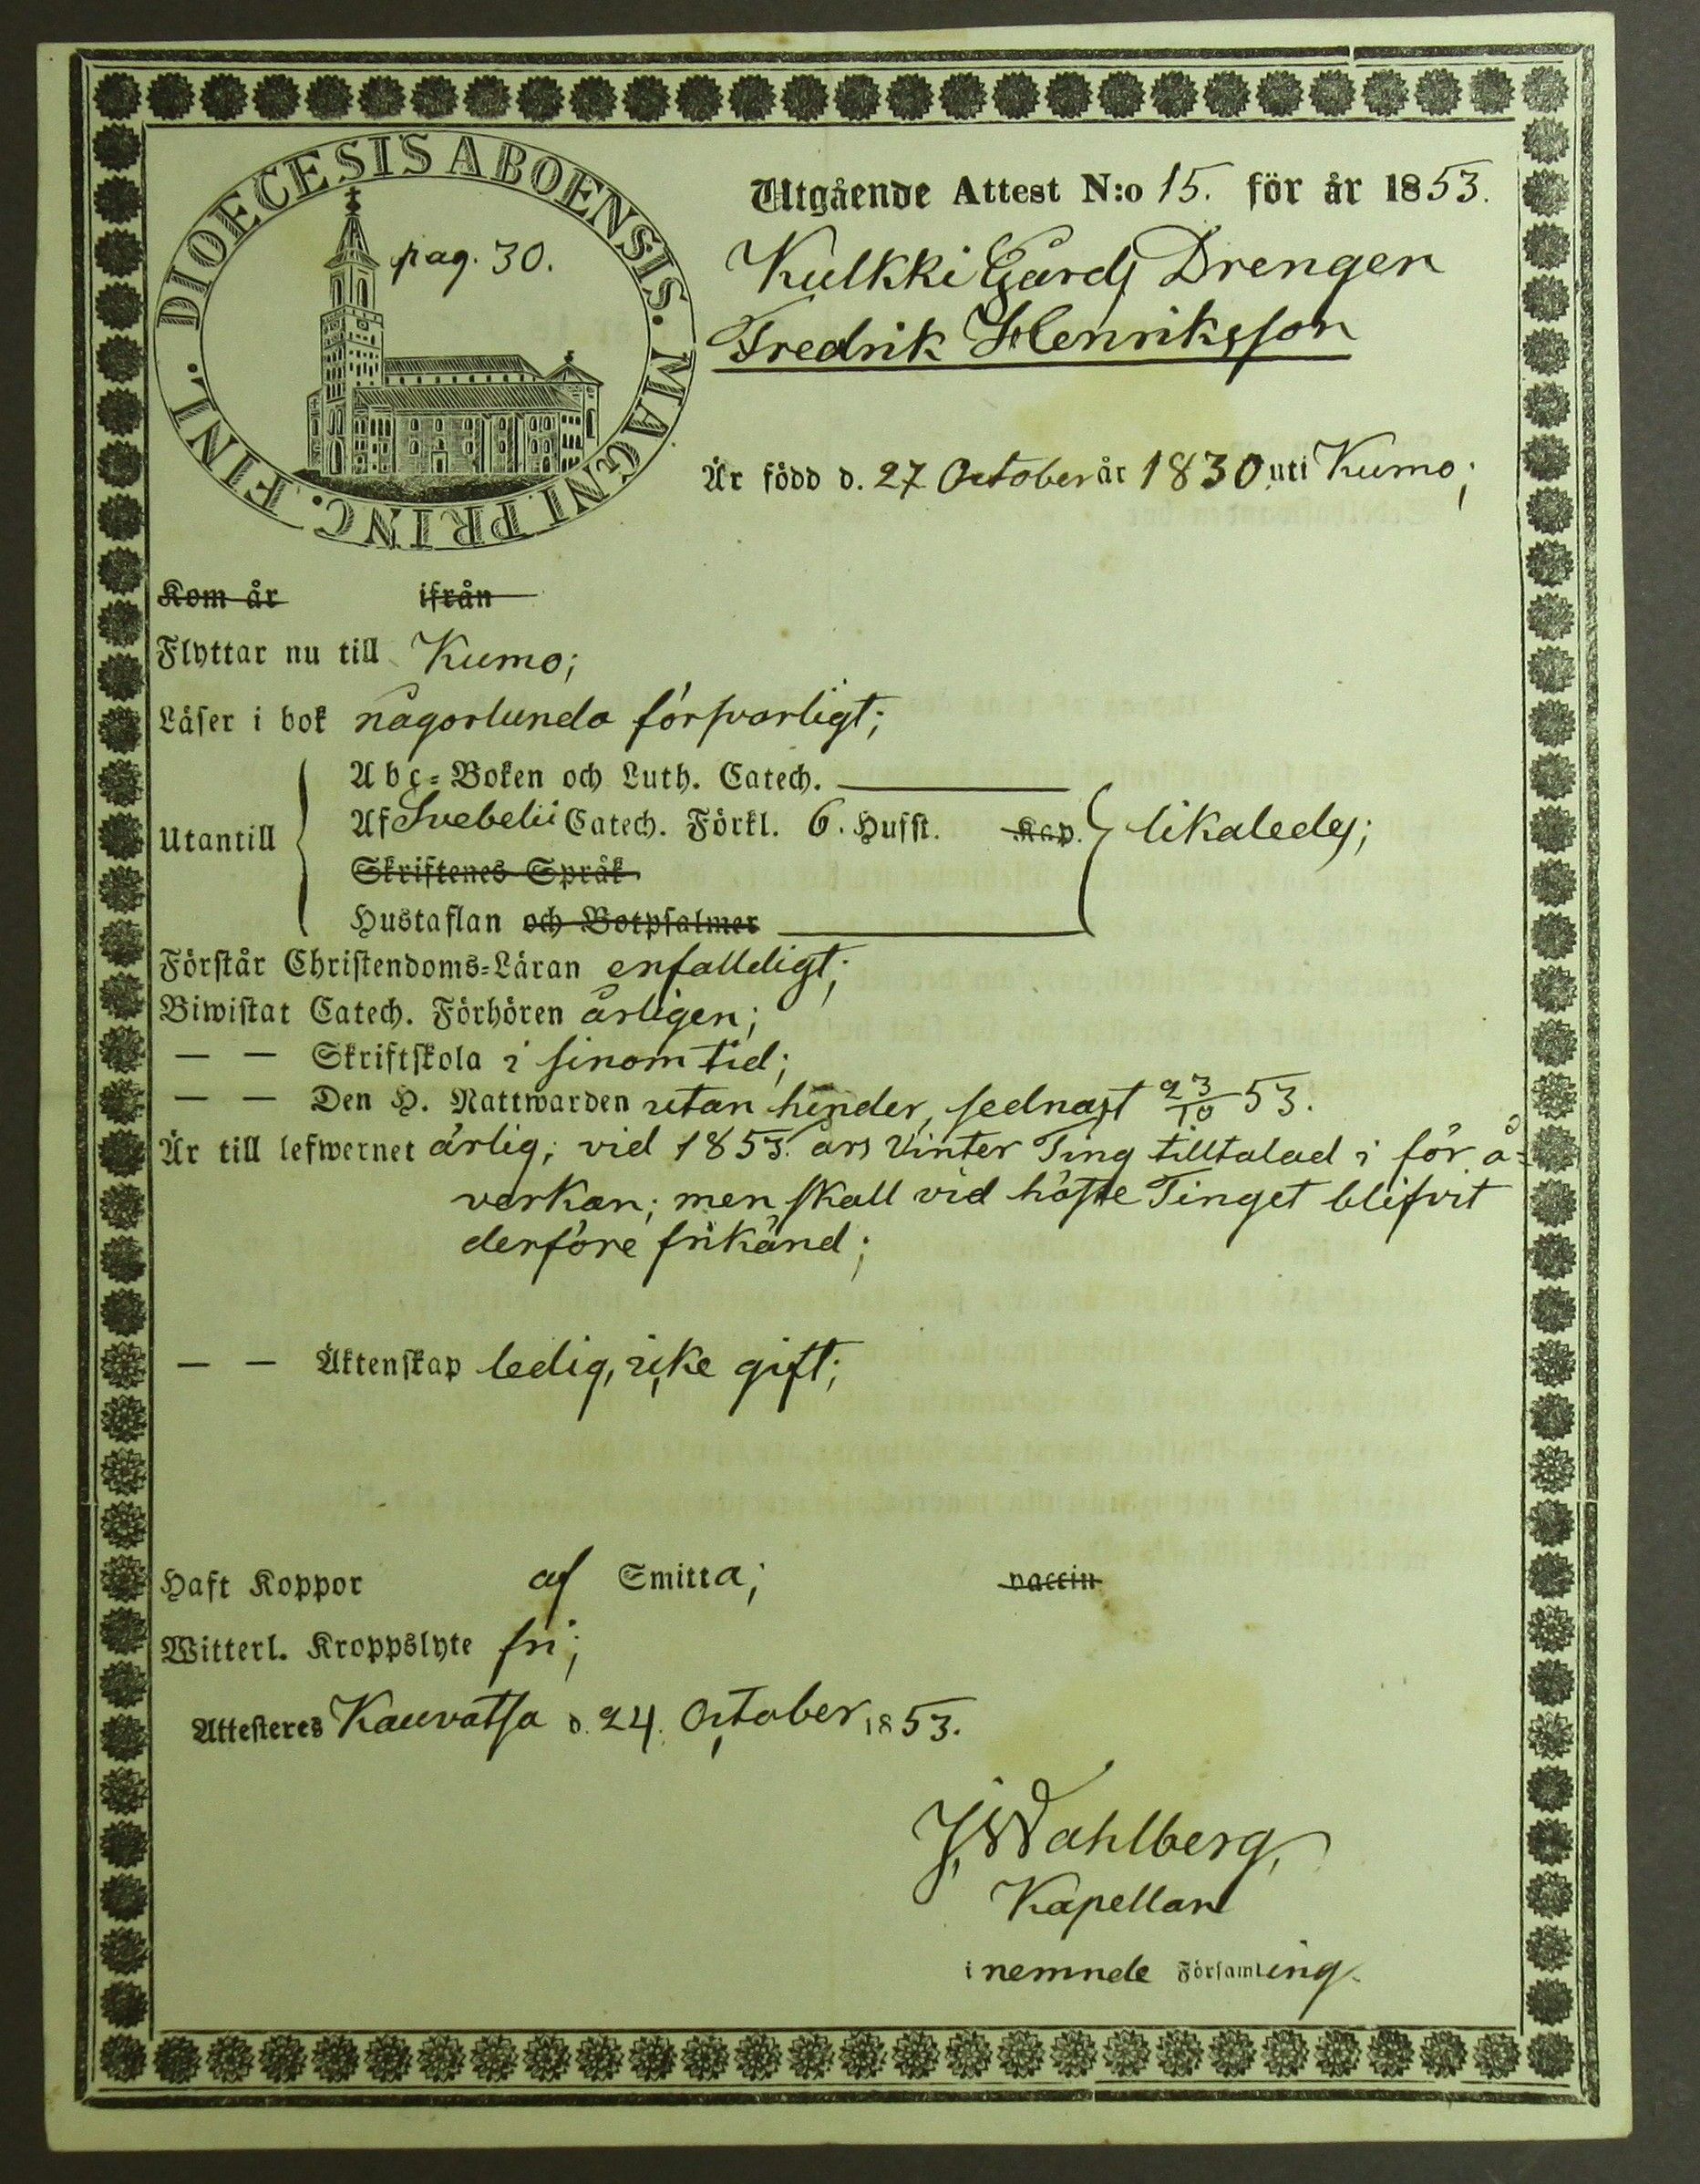 DIOECESIS ABOENSIS. MAGNI PRINC. FINL.
pag. 30.
Utgående Attest N:o 15. för år 1853.
Kulkki Gårds Drengen
Fredrik Henriksson
Är född d. 27 October år 1830 uti Kumo;
Kom år ifrån
Flyttar nu till Kumo;
Läser i bok någorlunda försvarligt;
Utantill
Abc-Boken och Luth. Catech.
Af Svebelii Catech. Förkl. 6. Hufst. Kap. likaledes;
Skriftenes Språk
Hustaflan och Botpsalmer
Förstår Christendoms-Läran enfalldigt;
Biwistat Catech. Förhören årligen;
— — Skriftskola i sinom tid;
— — Den H. Nattwarden utan hinder, sednast 23/10 53.
Är till lefwernet ärlig; vid 1853 års Vinter Ting tilltalad i för å-
verkan; men skall vid höste Tinget blifvit
derföre frikänd;
— — Äktenskap ledig, icke gift;
Haft Koppor af Smitta; vaccin
Witterl. Kroppslyte fri;
Attesteres Kauvatsa d. 24. October 1853.
J. Wahlberg,
Kapellan
i nemnde Församling.